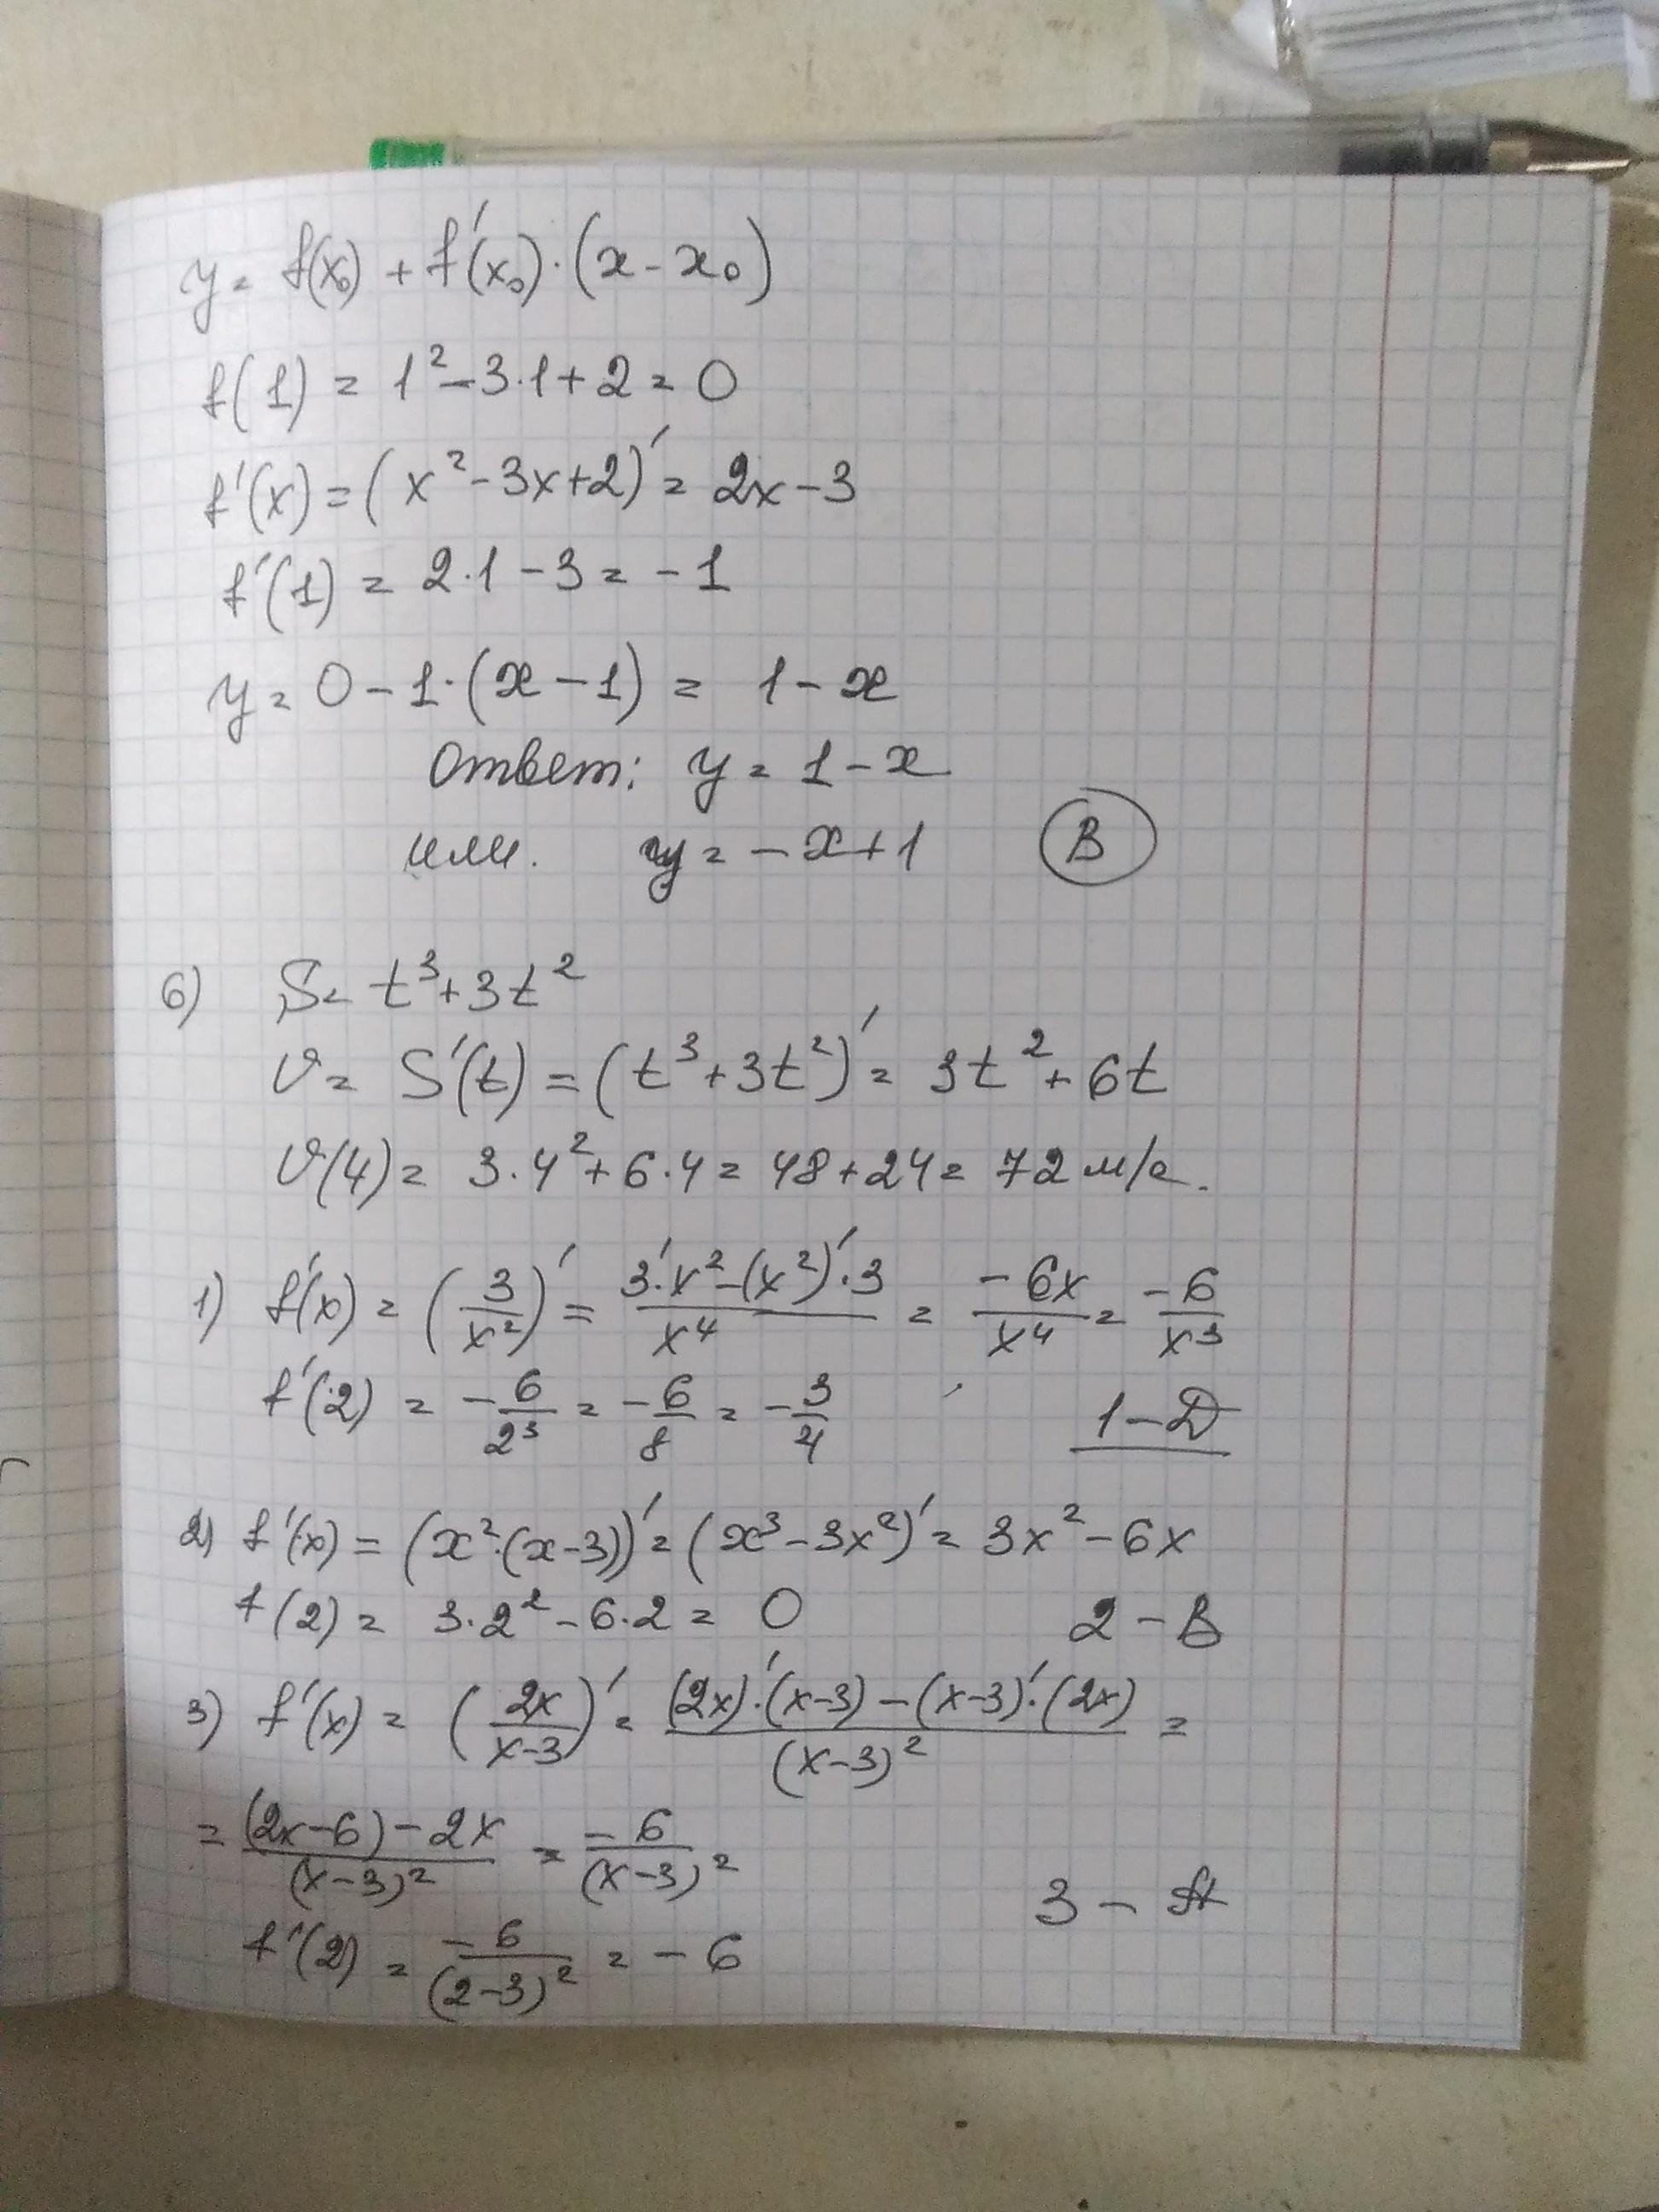 y = f(x₀) + f'(x₀)·(x - x₀)
f(1) = 1² - 3·1 + 2 = 0
f'(x) = (x² - 3x + 2)' = 2x - 3
f'(1) = 2·1 - 3 = -1
y = 0 - 1·(x - 1) = 1 - x
Ответ: y = 1 - x
или. y = - x + 1 В
6) S = t³ + 3t²
v = S'(t) = (t³ + 3t²)' = 3t² + 6t
v(4) = 3·4² + 6·4 = 48 + 24 = 72 м/с.
1) f'(x) = (3/x²)' = (3'·x² - (x²)'·3)/x⁴ = -6x/x⁴ = -6/x³
f'(2) = -6/2³ = -6/8 = -3/4 1 - D
2) f'(x) = (x²·(x - 3))' = (x³ - 3x²)' = 3x² - 6x
f(2) = 3·2² - 6·2 = 0 2 - В
3) f'(x) = (2x/(x-3))' = ((2x)'·(x-3) - (x-3)'·(2x))/(x-3)² =
= ((2x-6) - 2x)/(x-3)² = -6/(x-3)²
3 - А
f'(2) = -6/(2-3)² = -6